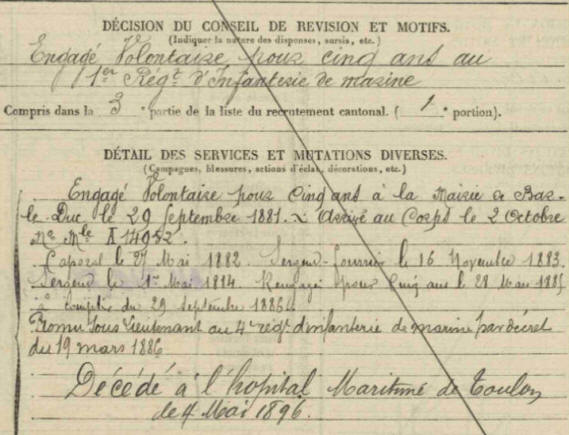 DÉCISION DU CONSEIL DE REVISION ET MOTIFS.
(Indiquer la nature des dispenses, sursis, etc.)
Engagé Volontaire pour cinq ans au
1er Régt d'Infanterie de marine
Compris dans la 3e partie de la liste du recrutement cantonal. ( 1e portion).
DÉTAIL DES SERVICES ET MUTATIONS DIVERSES.
(Campagnes, blessures, actions d'éclat, décorations, etc.)
Engagé Volontaire pour Cinq ans à la Mairie de Bar-
le-Duc le 29 Septembre 1881. Arrivé au Corps le 2 Octobre
No Mle A 14952.
Caporal le 27 Mai 1882. Sergent-fourrier le 16 Novembre 1883.
Sergent le 1er Mai 1884. Rengagé pour Cinq ans le 28 1885
à compter du 29 Septembre 1886.
Promu Sous Lieutenant au 4e régt d'infanterie de marine par décret
du 19 mars 1886
Décédé à l'hopital Maritime de Toulon
le 4 Mai 1896.